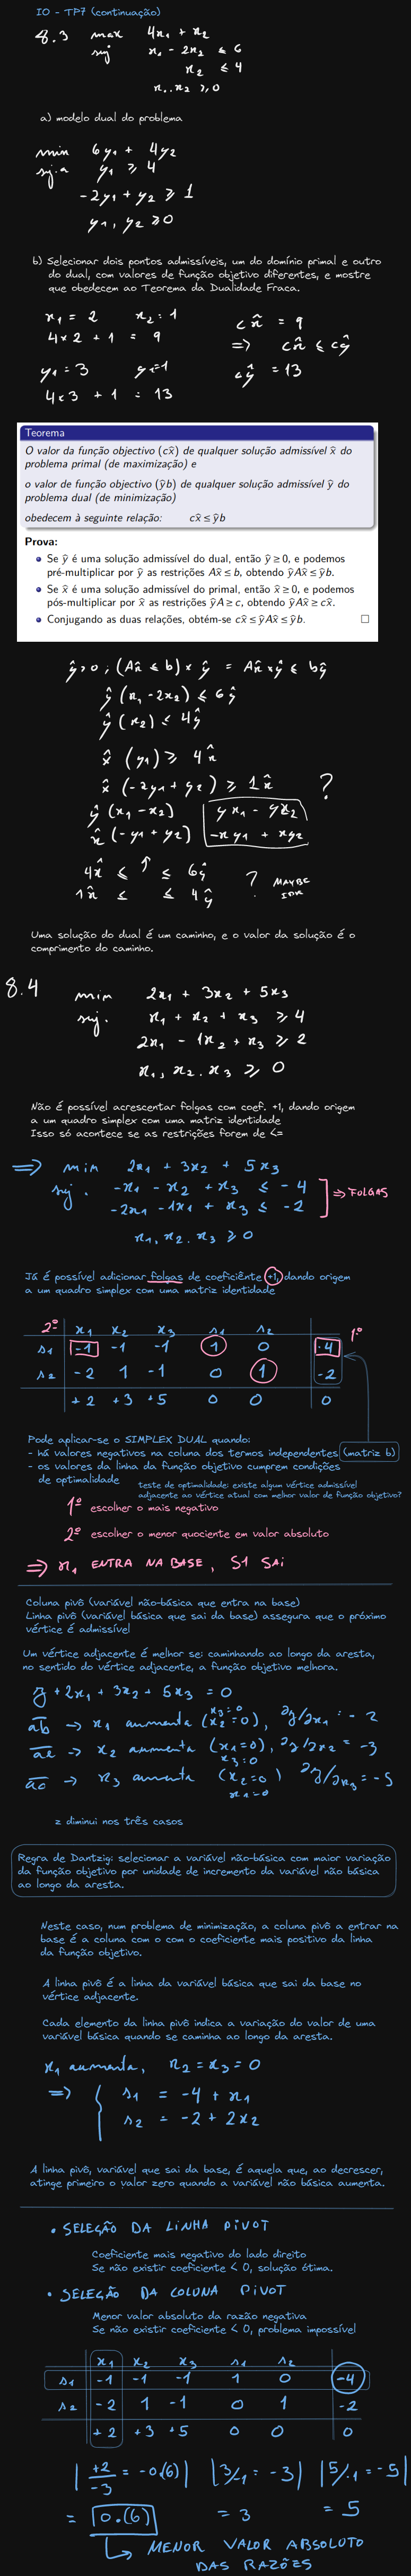 IO - TP7 (continuação)
8.3 max 4x1 + x2
suj x1 - 2x2 ≤ 6
x2 ≤ 4
x1, x2 ≥ 0
a) modelo dual do problema
min 6y1 + 4y2
suj.a y1 ≥ 4
-2y1 + y2 ≥ 1
y1, y2 ≥ 0
b) Selecionar dois pontos admissíveis, um do domínio primal e outro
do dual, com valores de função objetivo diferentes, e mostre
que obedecem ao Teorema da Dualidade Fraca.
x1 = 2 x2 = 1 cx̂ = 9
4x2 + 1 = 9 => cx̂ ≤ cŷ
y1 = 3 y2=1 cŷ = 13
4x3 + 1 = 13
Teorema
O valor da função objectivo (cx̂) de qualquer solução admissível x̂ do
problema primal (de maximização) e
o valor de função objectivo (ŷb) de qualquer solução admissível ŷ do
problema dual (de minimização)
obedecem à seguinte relação: cx̂ ≤ ŷb
Prova:
Se ŷ é uma solução admissível do dual, então ŷ ≥ 0, e podemos
pré-multiplicar por ŷ as restrições Ax̂ ≤ b, obtendo ŷAx̂ ≤ ŷb.
Se x̂ é uma solução admissível do primal, então x̂ ≥ 0, e podemos
pós-multiplicar por x̂ as restrições ŷA ≥ c, obtendo ŷAx̂ ≥ cx̂.
Conjugando as duas relações, obtém-se cx̂ ≤ ŷAx̂ ≤ ŷb. □
ŷ>0 ; (Ax̂ ≤ b) × ŷ = Ax̂×ŷ ≤ bŷ
ŷ (x1 - 2x2) ≤ 6ŷ
ŷ (x2) ≤ 4ŷ
x̂ (y1) ≥ 4x̂
x̂ (-2y1 + y2) ≥ 1x̂ ?
ŷ (x1 - x2) yx1 - yx2
x̂ (-y1 + y2) -xy1 + xy2
4x̂ ≤ ↑ ≤ 6ŷ ? MAYBE
1x̂ ≤ ≤ 4ŷ IDK
Uma solução do dual é um caminho, e o valor da solução é o
comprimento do caminho.
8.4 min 2x1 + 3x2 + 5x3
suj. x1 + x2 + x3 ≥ 4
2x1 - 1x2 + x3 ≥ 2
x1, x2, x3 ≥ 0
Não é possível acrescentar folgas com coef. +1, dando origem
a um quadro simplex com uma matriz identidade
Isso só acontece se as restrições forem de <=
=> min 2x1 + 3x2 + 5x3
suj. -x1 - x2 + x3 ≤ -4 => FOLGAS
-2x1 - 1x1 + x3 ≤ -2
x1, x2, x3 ≥ 0
Já é possível adicionar folgas de coeficiênte +1, dando origem
a um quadro simplex com uma matriz identidade
2º x1 x2 x3 s1 s2 1º
s1 -1 -1 -1 1 0 -4
s2 -2 1 -1 0 1 -2
+2 +3 +5 0 0 0
Pode aplicar-se o SIMPLEX DUAL quando:
- há valores negativos na coluna dos termos independentes (matriz b)
- os valores da linha da função objetivo cumprem condições
de optimalidade
teste de optimalidade: existe algum vértice admissível
adjacente ao vértice atual com melhor valor de função objetivo?
1º escolher o mais negativo
2º escolher o menor quociente em valor absoluto
=> x1 ENTRA NA BASE, S1 SAI
Coluna pivô (variável não-básica que entra na base)
Linha pivô (variável básica que sai da base) assegura que o próximo
vértice é admissível
Um vértice adjacente é melhor se: caminhando ao longo da aresta,
no sentido do vértice adjacente, a função objetivo melhora.
z + 2x1 + 3x2 + 5x3 = 0
ab → x1 aumenta (x3=0 x2=0), ∂z/∂x1 = -2
ae → x2 aumenta (x1=0 x3=0), ∂z/∂x2 = -3
ac → x3 aumenta (x2=0 x1=0) ∂z/∂x3 = -5
z diminui nos três casos
Regra de Dantzig: selecionar a variável não-básica com maior variação
da função objetivo por unidade de incremento da variável não básica
ao longo da aresta.
Neste caso, num problema de minimização, a coluna pivô a entrar na
base é a coluna com o com o coeficiente mais positivo da linha
da função objetivo.
A linha pivô é a linha da variável básica que sai da base no
vértice adjacente.
Cada elemento da linha pivô indica a variação do valor de uma
variável básica quando se caminha ao longo da aresta.
x1 aumenta, x2 = x3 = 0
=> { s1 = -4 + x1
s2 = -2 + 2x2
A linha pivô, variável que sai da base, é aquela que, ao decrescer,
atinge primeiro o valor zero quando a variável não básica aumenta.
• SELEÇÃO DA LINHA PIVOT
Coeficiente mais negativo do lado direito
Se não existir coeficiente < 0, solução ótima.
• SELEÇÃO DA COLUNA PIVOT
Menor valor absoluto da razão negativa
Se não existir coeficiente < 0, problema impossível
x1 x2 x3 s1 s2
s1 -1 -1 -1 1 0 -4
s2 -2 1 -1 0 1 -2
+2 +3 +5 0 0 0
|+2/-3 = -0.(6)| |3/-1 = -3| |5/-1 = -5|
= 0.(6) = 3 = 5
↳ MENOR VALOR ABSOLUTO
DAS RAZÕES